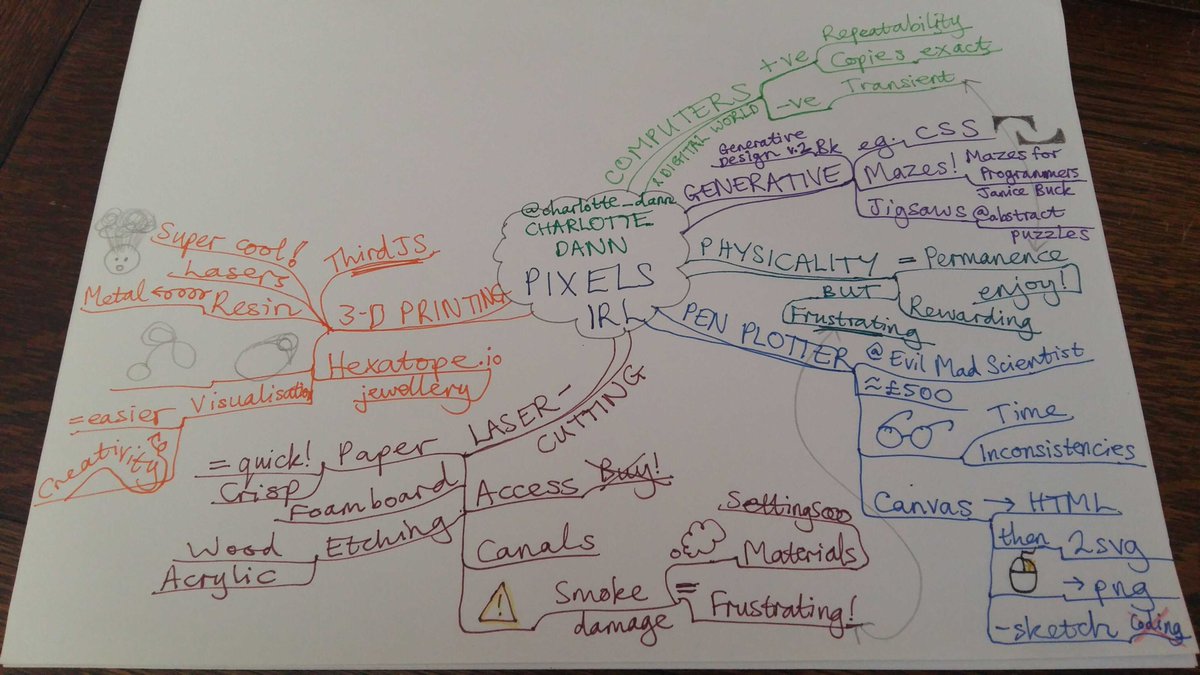 @charlotte_dann
CHARLOTTE
DANN
PIXELS
IRL
COMPUTERS
& DIGITAL WORLD
+ve
Repeatability
Copies exact
-ve
Transient
GENERATIVE
Generative
Design v.2 Bk
eg. CSS
Mazes!
Mazes for
Programmers
Janice Buck
Jigsaws @abstract
puzzles
PHYSICALITY
= Permanence
enjoy!
Rewarding
BUT
Frustrating
PEN PLOTTER
@ Evil Mad Scientist
≈£500
Time
Inconsistencies
Canvas → HTML
then 2svg
→ png
-sketch
Coding
LASER-
CUTTING
Paper
= quick!
Crisp
Foamboard
Etching
Wood
Acrylic
Access Buy!
Canals
Smoke
damage
Settings
Materials
= Frustrating!
3-D PRINTING
ThirdJS
Super cool!
Lasers
Resin
Metal
Hexatope.io
jewellery
Visualisation
= easier
Creativity